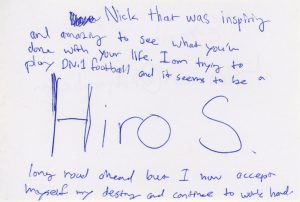 Nick that was inspiring
and amazing to see what you've
done with your life. I am trying to
play DIV.1 football and it seems to be a
Hiro S.
long road ahead but I now accept
myself my destiny and continue to work hard.